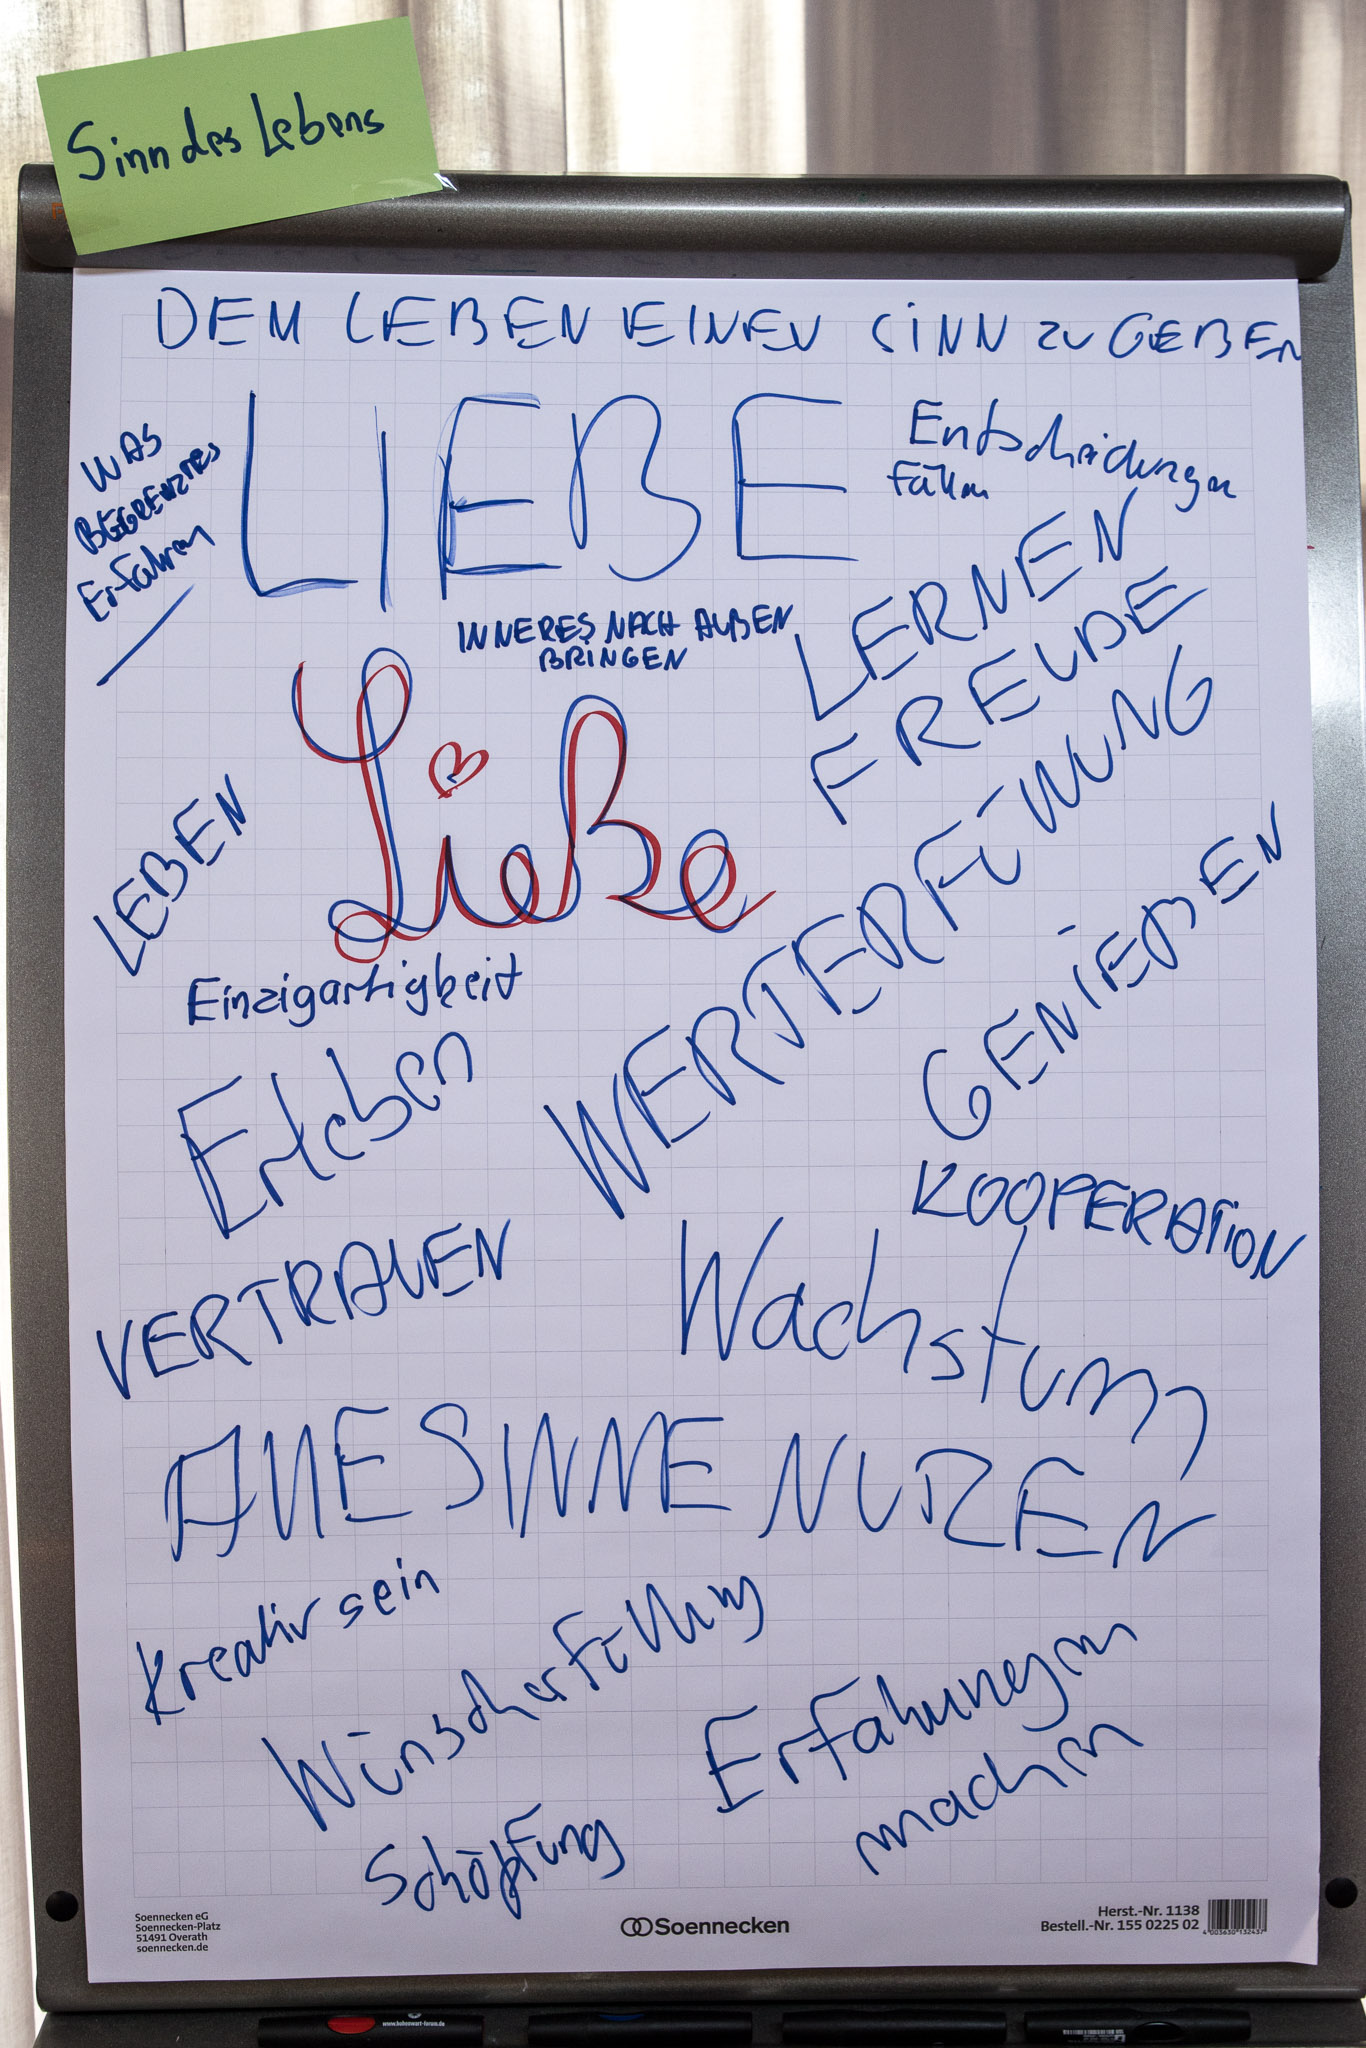 Sinn des Lebens
DEM LEBEN EINEN SINN ZU GEBEN
WAS
BEGRENZTES
Erfahren
LIEBE
Entscheidungen
Fällen
INNERES NACH AUßEN
BRINGEN
LERNEN
FREUDE
Liebe
LEBEN
WERTERFÜLLUNG
Einzigartigkeit
GENIEßEN
Erleben
KOOPERATION
VERTRAUEN
Wachstum
ALLE SINNE NUTZEN
Kreativ sein
Wünscherfüllung
Erfahrungen
machen
Schöpfung
Soennecken eG
Soennecken-Platz
51491 Overath
soennecken.de
Soennecken
Herst.-Nr. 1138
Bestell.-Nr. 155 0225 02
4 003630 132437
www.hohenwart-forum.de